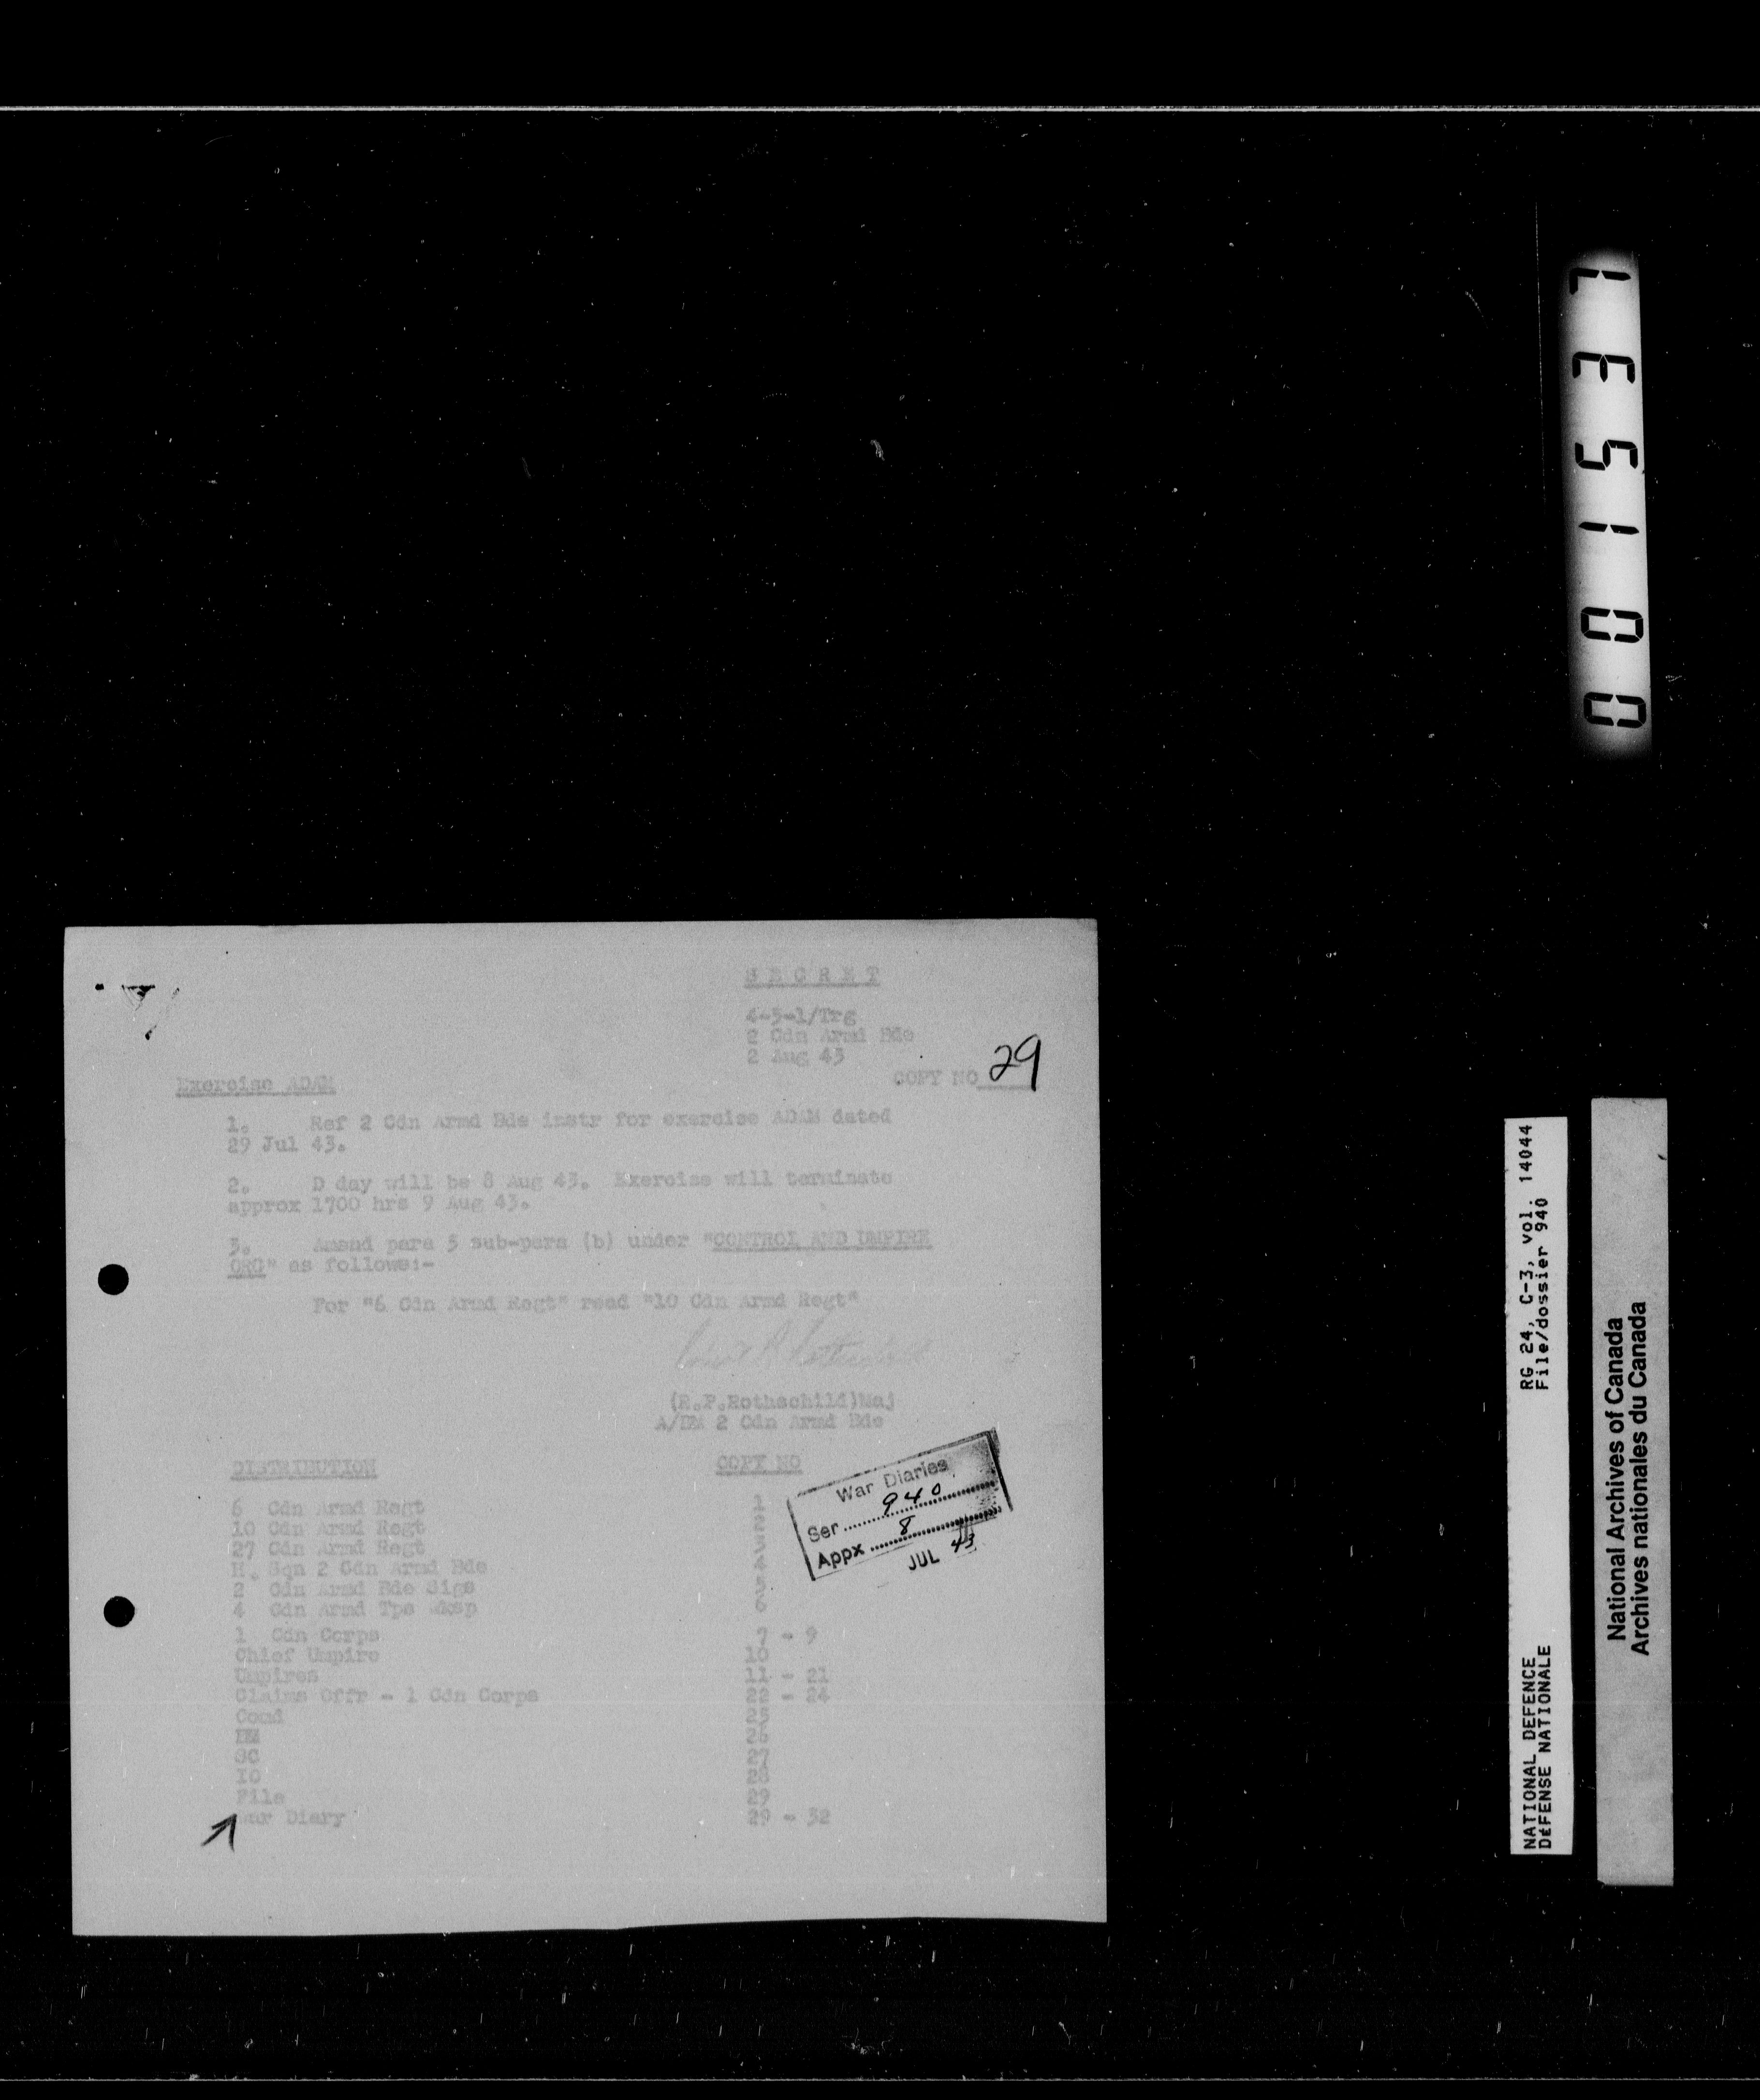 S E C R E T
4-5-1/Trg
2 Cdn Armd Bde
2 Aug 43
COPY NO 29
Exercise ADAM
1. Ref 2 Cdn Armd Bde instr for exercise ADAM dated
29 Jul 43.
2. D day will be 8 Aug 43. Exercise will terminate
approx 1700 hrs 9 Aug 43.
3. Amend para 5 sub-para (b) under "CONTROL AND UMPIRE
ORG" as follows:-
For "6 Cdn Armd Regt" read "10 Cdn Armd Regt"
(R.P.Rothschild)Maj
A/BM 2 Cdn Armd Bde
DISTRIBUTION COPY NO
6 Cdn Armd Regt 1
10 Cdn Armd Regt 2
27 Cdn Armd Regt 3
H. Sqn 2 Cdn Armd Bde 4
2 Cdn Armd Bde Sigs 5
4 Cdn Armd Tps Wksp 6
1 Cdn Corps 7 - 9
Chief Umpire 10
Umpires 11 - 21
Claims Offr - 1 Cdn Corps 22 - 24
Comd 25
BM 26
SC 27
IO 28
File 29
War Diary 29 - 32
War Diaries
Ser 940
Appx 8
JUL 43
001537
RG 24, C-3, vol. 14044
File/dossier 940
NATIONAL DEFENCE
DÉFENSE NATIONALE
National Archives of Canada
Archives nationales du Canada